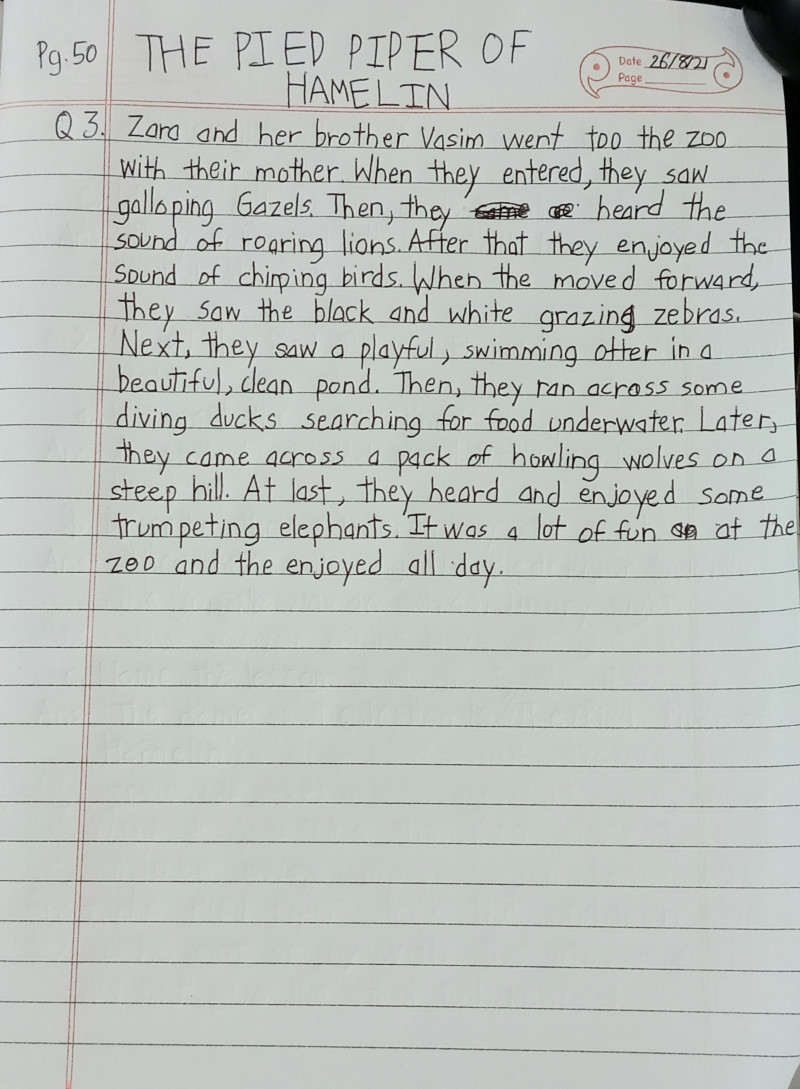 Pg.50 THE PIED PIPER OF
HAMELIN
Date 26/8/21
Page
Q 3. Zara and her brother Vasim went too the zoo
with their mother. When they entered, they saw
galloping Gazels. Then, they heard the
sound of roaring lions. After that they enjoyed the
sound of chirping birds. When the moved forward,
they saw the black and white grazing zebras.
Next, they saw a playful, swimming otter in a
beautiful, clean pond. Then, they ran across some
diving ducks searching for food underwater. Later,
they came across a pack of howling wolves on a
steep hill. At last, they heard and enjoyed some
trumpeting elephants. It was a lot of fun at the
zoo and the enjoyed all day.